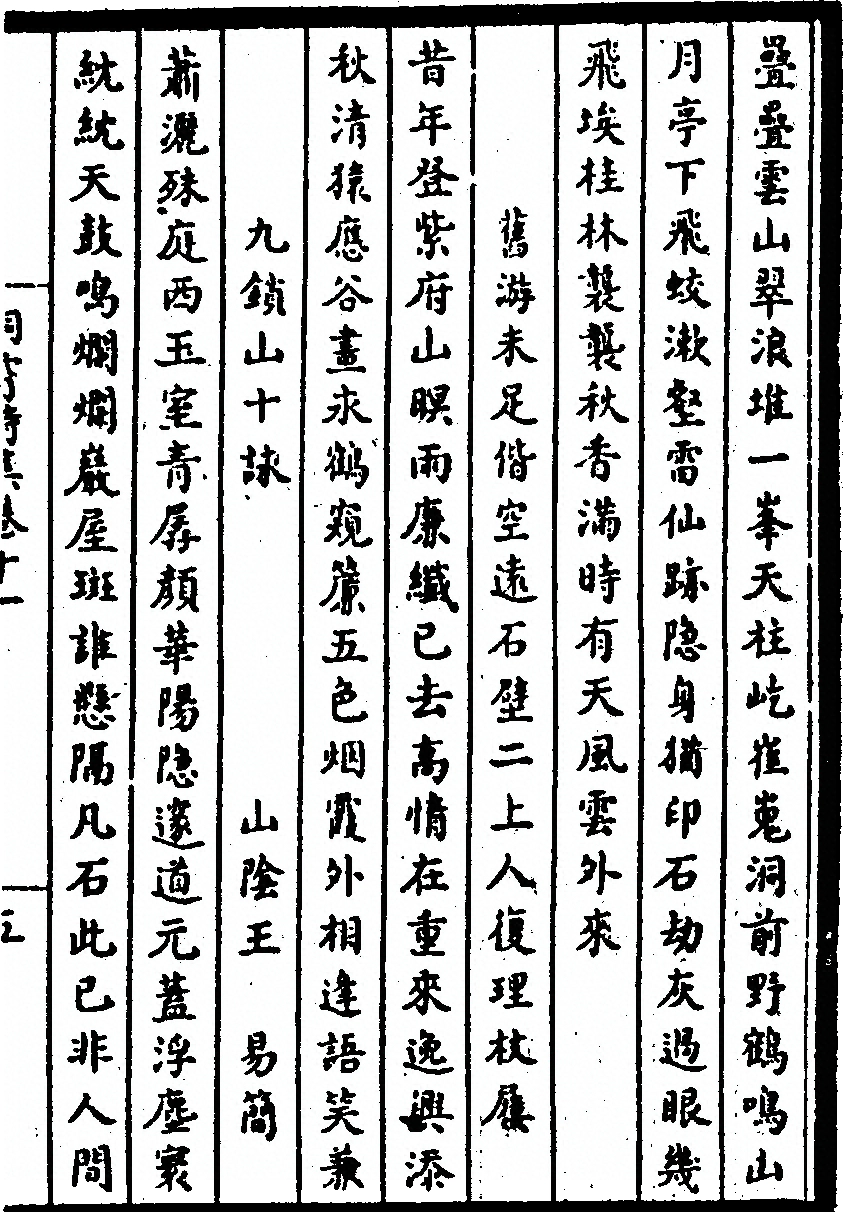 疊疊雲山翠浪堆一峯天柱屹崔嵬洞前野鶴鳴山
月亭下飛蛟漱壑雷仙跡隐身猶印石劫灰過眼幾
飛埃桂林襲襲秋香滿時有天風雲外來
舊游未足偕空遠石壁二上人復理杖屨
昔年登紫府山暝雨廉纖已去高情在重來逸興添
秋清猿應谷晝永鶴窺簾五色烟霞外相逢語笑兼
九鎖山十詠 山陰王 易簡
蕭灑殊庭西玉室青孱顏華陽隐邃道元蓋浮塵寰
紞紞天鼓鳴爛爛巖屋斑誰懸隔凡石此已非人間
洞霄詩集卷十一 五